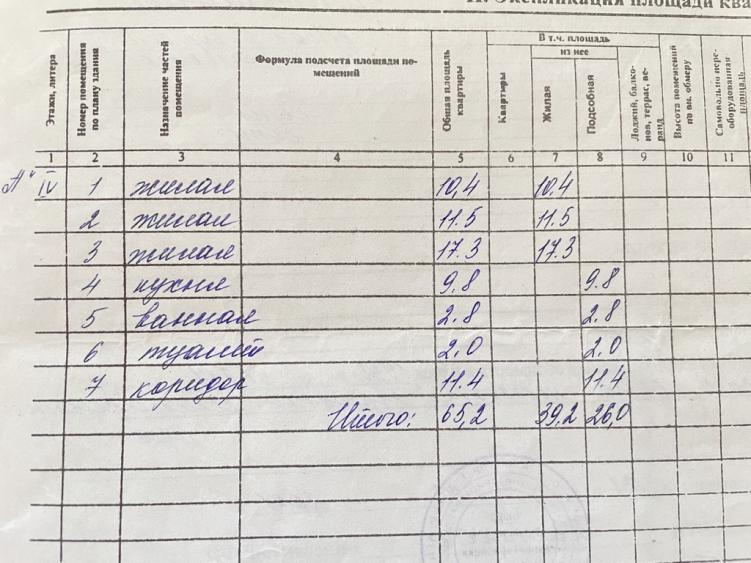 II. Экспликация площади ква
Этажи, литера | Номер помещения по плану здания | Назначение частей помещения | Формула подсчета площади по-мещений | Общая площадь квартиры | В т.ч. площадь | Квартиры | из нее | Жилая | Подсобная | Лоджий, балко-нов, террас, ве-ранд | Высота помещений по вн. обмеру | Самовольно пере-оборудованная площадь
1 2 3 4 5 6 7 8 9 10 11
"А" IV 1 жилая 10,4 10.4
2 жилая 11.5 11.5
3 жилая 17.3 17.3
4 кухня 9.8 9.8
5 ванная 2.8 2.8
6 туалет 2.0 2.0
7 коридор 11.4 11.4
Итого: 65,2 39,2 26,0